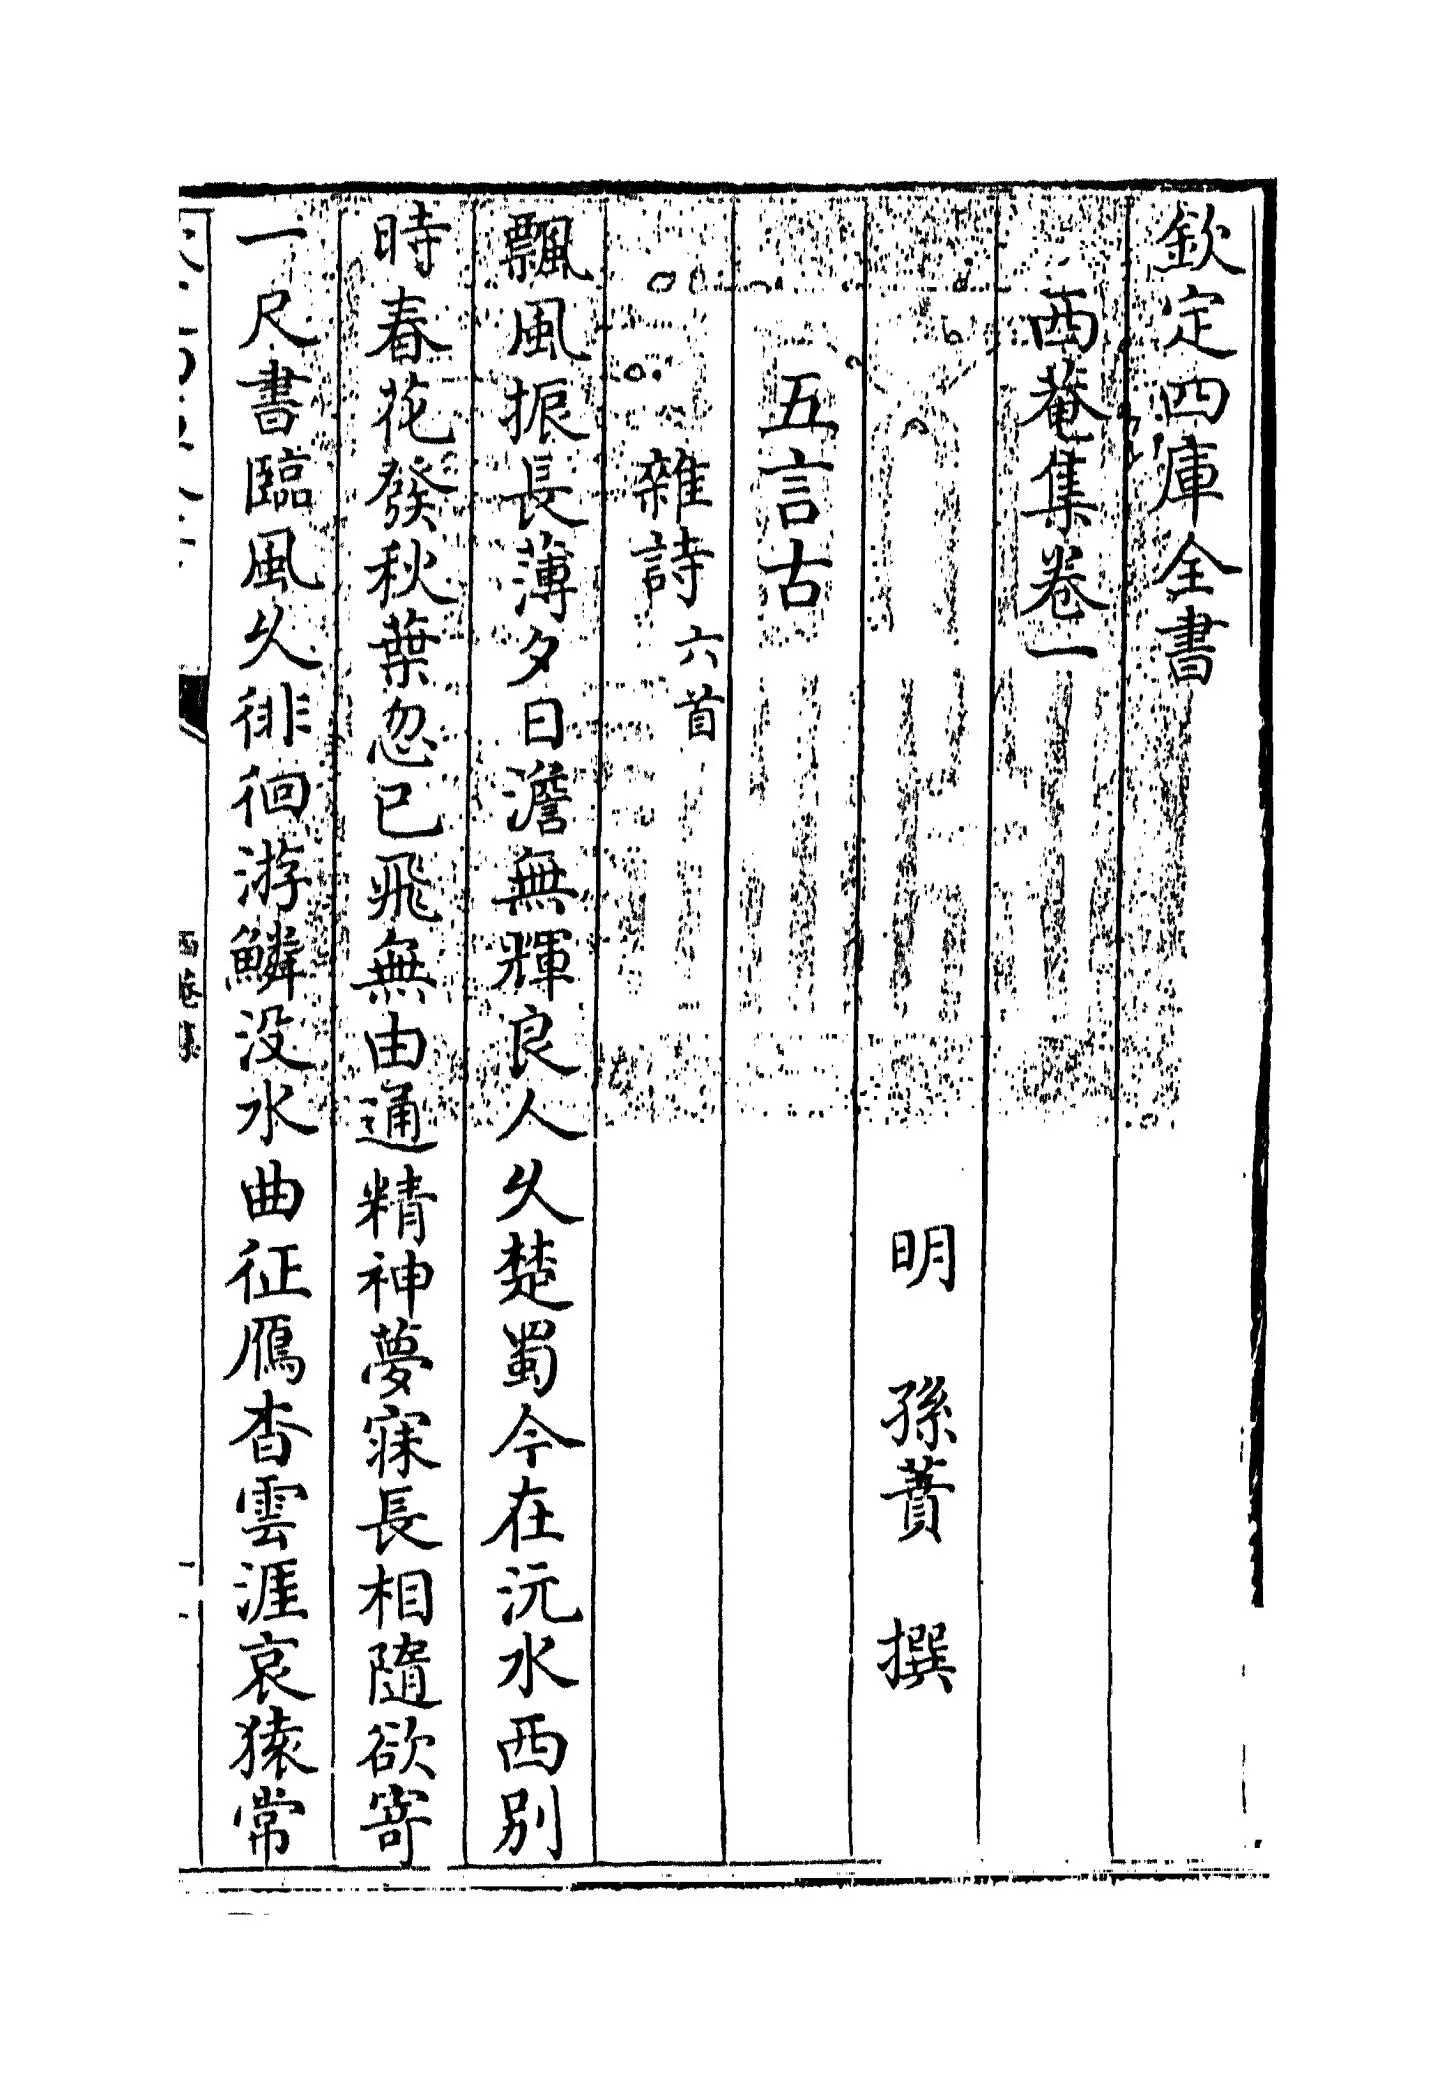 欽定四庫全書
西菴集卷一
明 孫蕡 撰
五言古
雜詩六首
飄風振長薄夕日澹無輝良人久楚蜀今在沅水西别
時春花發秋葉忽已飛無由通精神夢寐長相隨欲寄
一尺書臨風久徘徊游鱗没水曲征鴈杳雲涯哀猿常
西菴集